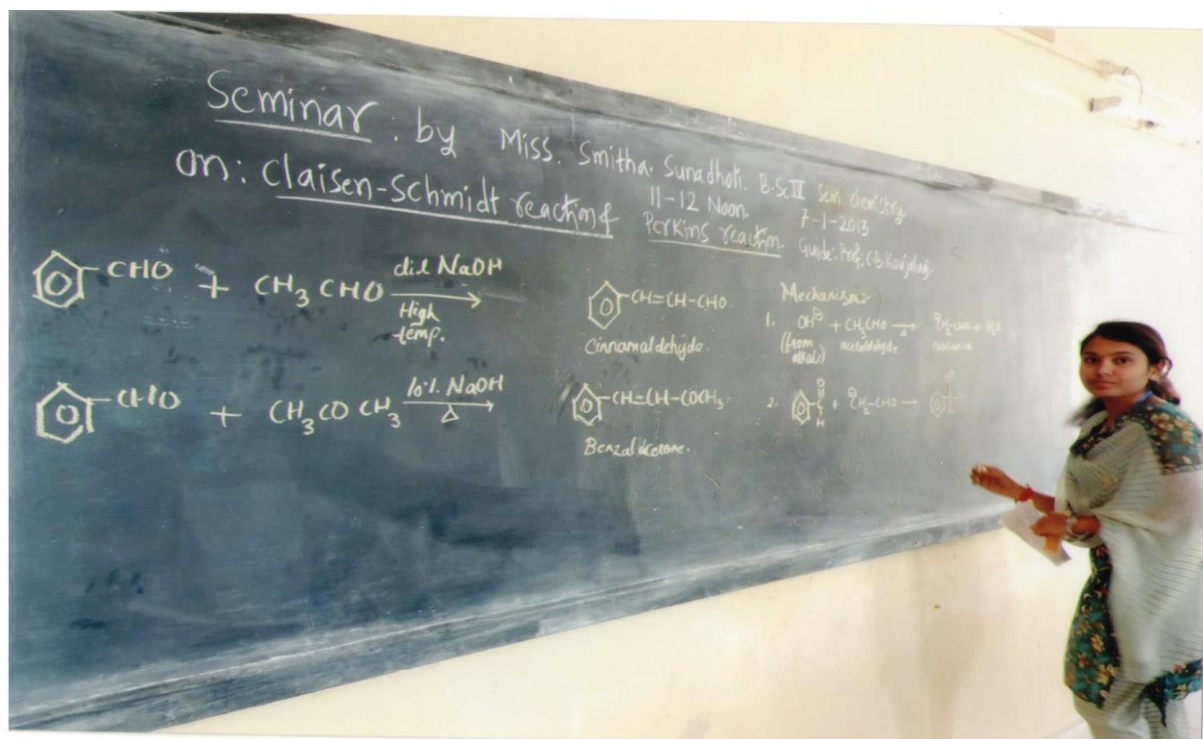 Seminar : by Miss. Smitha. Sunadholi. B.Sc IV Sem. Chemistry
on: Claisen-Schmidt reaction & Perkins reaction.
11-12 Noon. 7-1-2013
Guide: Prof. C.B.
CHO + CH3CHO dil NaOH High temp. CH=CH-CHO
Cinnamaldehyde.
CHO + CH3COCH3 10% NaOH Δ CH=CH-COCH3
Benzal acetone.
Mechanism:-
1. OH⊖ + CH3CHO Δ
(from alkali) acetaldehyde
2. O C H + CH2-CHO